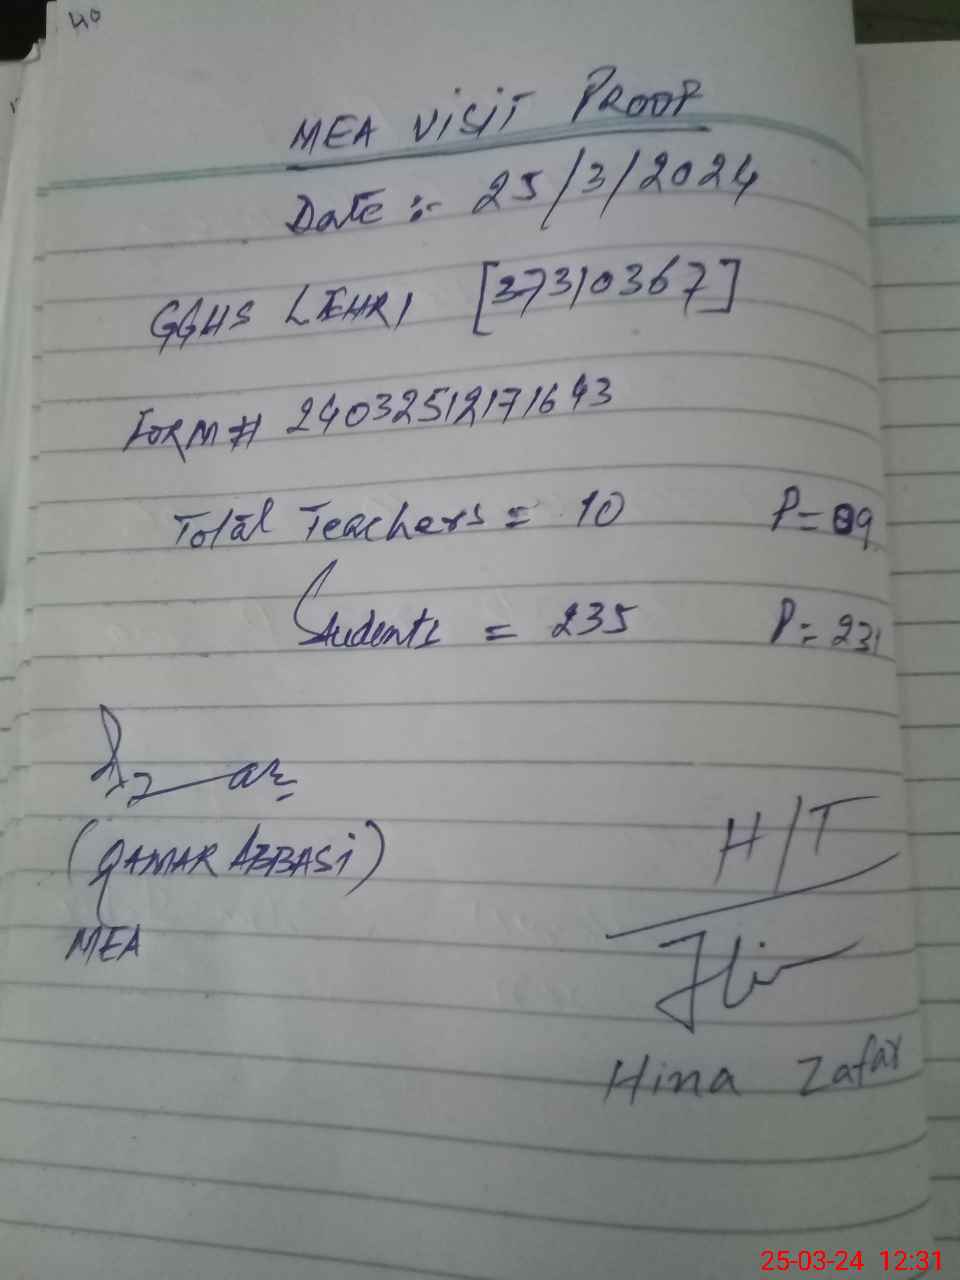 40
MEA VISIT PROOF
Date :- 25/3/2024
GGHS LEHRI [37310367]
FORM # 24032512171643
Total Teachers = 10 P=09
Students = 235 P=231
(QAMAR ABBASI)
MEA
H/T
Hina Zafar
25-03-24 12:31